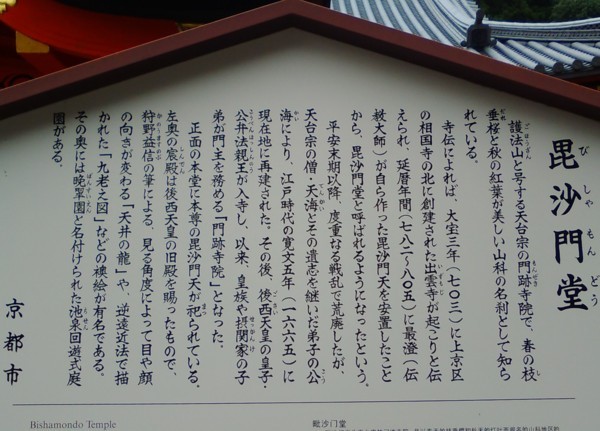 毘沙門堂
びしゃもんどう
護法山と号する天台宗の門跡寺院で、春の枝
垂桜と秋の紅葉が美しい山科の名刹として知ら
れている。
寺伝によれば、大宝三年(七〇三)に上京区
の相国寺の北に創建された出雲寺が起こりと伝
えられ、延暦年間(七八二〜八〇五)に最澄(伝
教大師)が自ら作った毘沙門天を安置したこと
から、毘沙門堂と呼ばれるようになったという。
平安末期以降、度重なる戦乱で荒廃したが、
天台宗の僧・天海とその遺志を継いだ弟子の公
海により、江戸時代の寛文五年(一六六五)に
現在地に再建された。その後、後西天皇の皇子・
公弁法親王が入寺し、以来、皇族や摂関家の子
弟が門主を務める「門跡寺院」となった。
正面の本堂に本尊の毘沙門天が祀られている。
左奥の宸殿は後西天皇の旧殿を賜ったもので、
狩野益信の筆による、見る角度によって目や顔
の向きが変わる「天井の龍」や、逆遠近法で描
かれた「九老之図」などの襖絵が有名である。
その奥には晩翠園と名付けられた池泉回遊式庭
園がある。
京都市
Bishamondo Temple
毗沙门堂